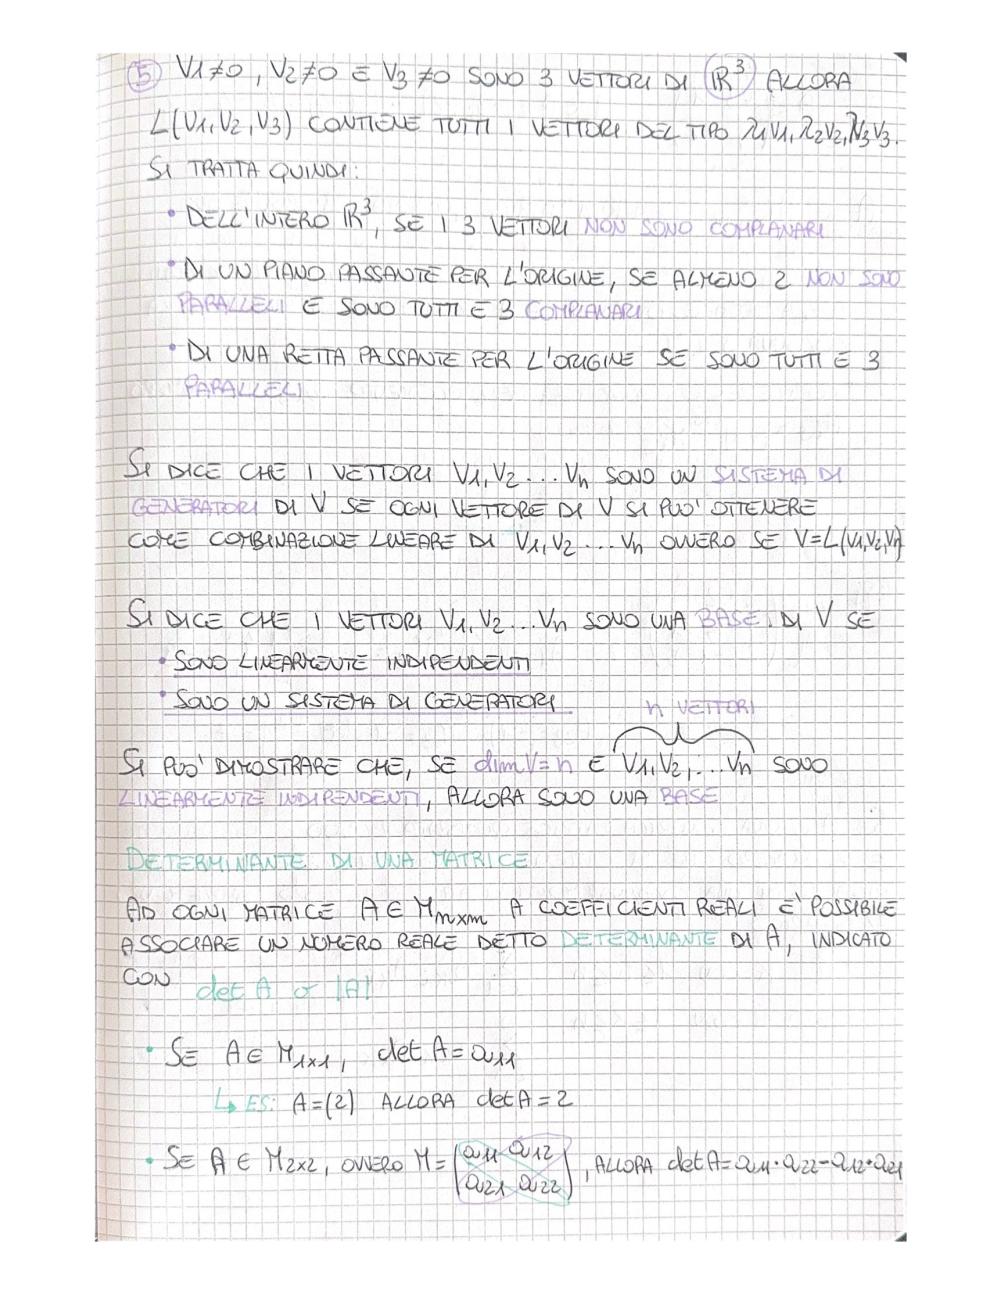 5 V1≠0, V2≠0 E V3≠0 SONO 3 VETTORI DI ℝ³ ALLORA
L(V1, V2, V3) CONTIENE TUTTI I VETTORI DEL TIPO λ1V1, λ2V2, λ3V3.
SI TRATTA QUINDI:
• DELL'INTERO ℝ³, SE I 3 VETTORI NON SONO COMPLANARI
• DI UN PIANO PASSANTE PER L'ORIGINE, SE ALMENO 2 NON SONO
PARALLELI E SONO TUTTI E 3 COMPLANARI
• DI UNA RETTA PASSANTE PER L'ORIGINE SE SONO TUTTI E 3
PARALLELI
SI DICE CHE I VETTORI V1, V2 ... Vn SONO UN SISTEMA DI
GENERATORI DI V SE OGNI VETTORE DI V SI PUO' OTTENERE
COME COMBINAZIONE LINEARE DI V1, V2 ... Vn OVVERO SE V=L(V1,V2,Vn)
SI DICE CHE I VETTORI V1, V2 ... Vn SONO UNA BASE DI V SE
• SONO LINEARMENTE INDIPENDENTI
• SONO UN SISTEMA DI GENERATORI
n VETTORI
SI PUO' DIMOSTRARE CHE, SE dim V=n E V1, V2, ... Vn SONO
LINEARMENTE INDIPENDENTI, ALLORA SONO UNA BASE
DETERMINANTE DI UNA MATRICE
AD OGNI MATRICE A∈Mmxm A COEFFICIENTI REALI E' POSSIBILE
ASSOCIARE UN NUMERO REALE DETTO DETERMINANTE DI A, INDICATO
CON det A o |A|
• SE A∈M1x1, det A=a11
↳ ES: A=(2) ALLORA det A=2
• SE A∈M2x2, OVVERO M=(a11 a12
a21 a22), ALLORA det A=a11·a22-a12·a21